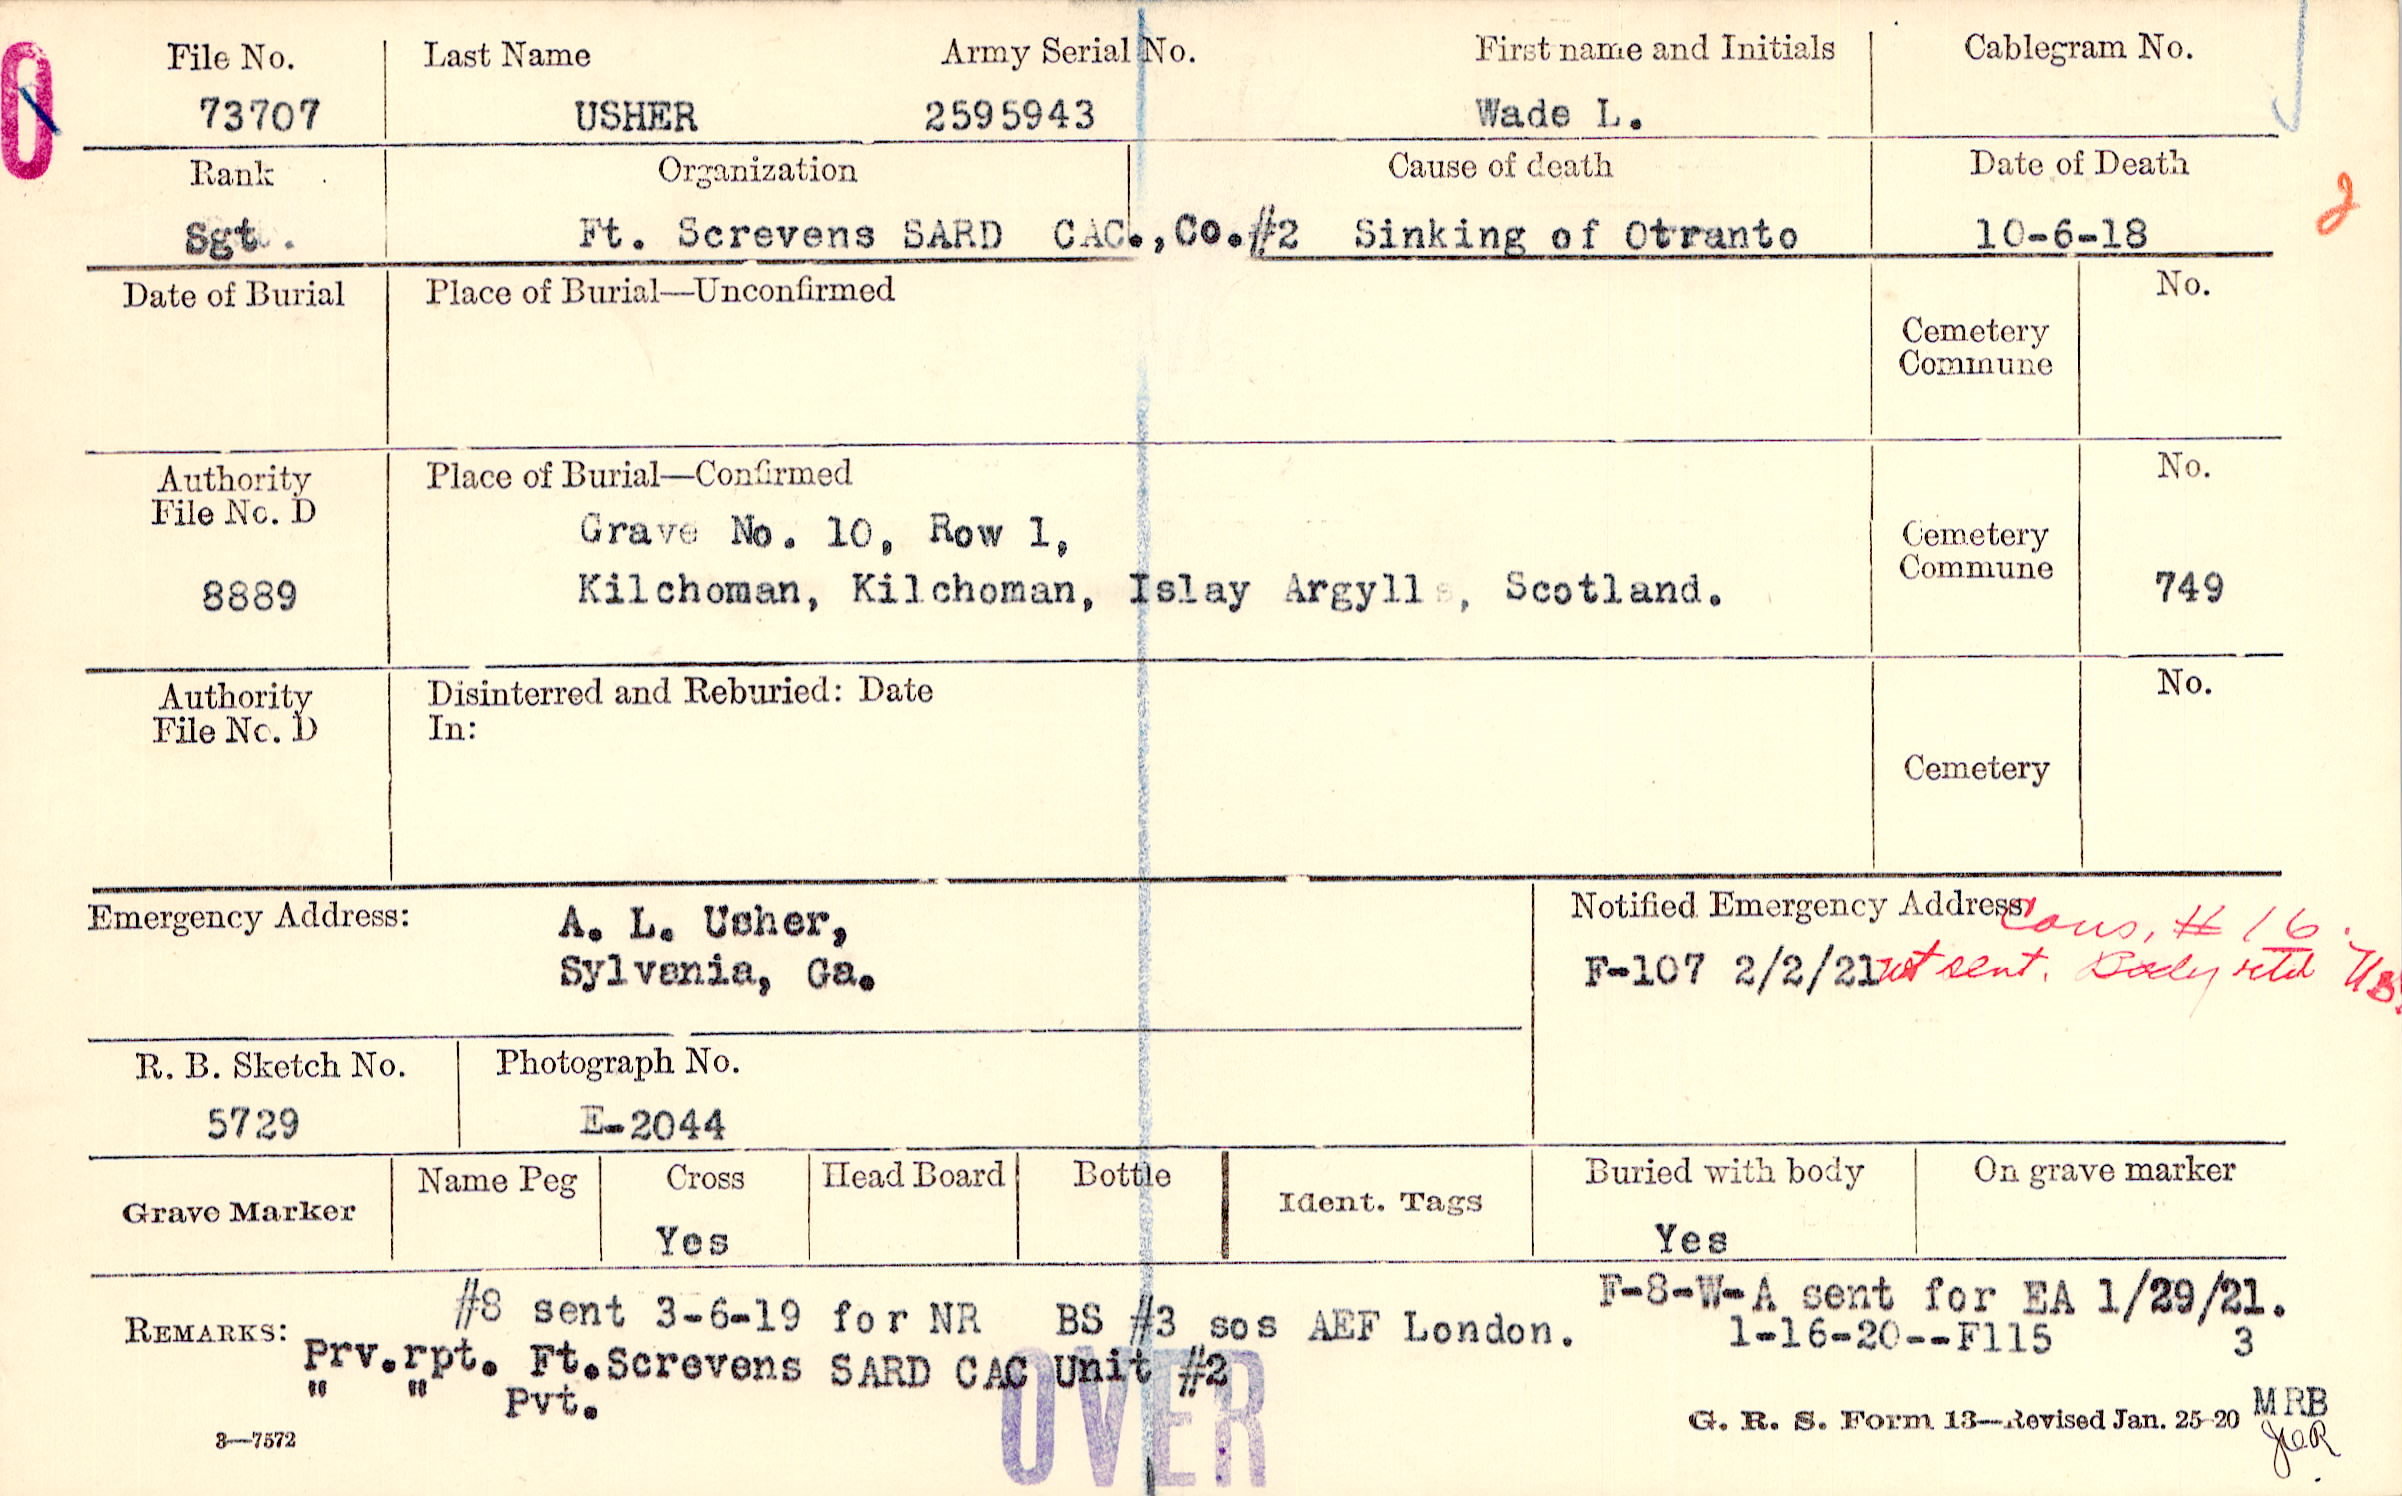 File No. Last Name Army Serial No. First name and Initials Cablegram No.
73707 USHER 2595943 Wade L.
Rank Organization Cause of death Date of Death
Sgt. Ft. Screvens SARD CAC., Co.#2 Sinking of Otranto 10-6-18
2
Date of Burial Place of Burial—Unconfirmed No.
Cemetery
Commune
Authority Place of Burial—Confirmed No.
File No. D
Grave No. 10, Row 1, Cemetery
Commune
8889 Kilchoman, Kilchoman, Islay Argylls, Scotland. 749
Authority Disinterred and Reburied: Date No.
File No. D In:
Cemetery
Emergency Address: A. L. Usher, Notified Emergency Address
Cons. # 16.
Sylvania, Ga. F-107 2/2/21 not sent. Body retd
R. B. Sketch No. Photograph No.
5729 E-2044
Grave Marker Name Peg Cross Head Board Bottle Ident. Tags Buried with body On grave marker
Yes Yes
REMARKS: #8 sent 3-6-19 for NR BS #3 sos AEF London. F-8-W-A sent for EA 1/29/21.
1-16-20--F115 3
Prv.rpt. Ft.Screvens SARD CAC Unit #2
" " Pvt.
OVER
3—7572 G. R. S. Form 13—Revised Jan. 25-20 MRB